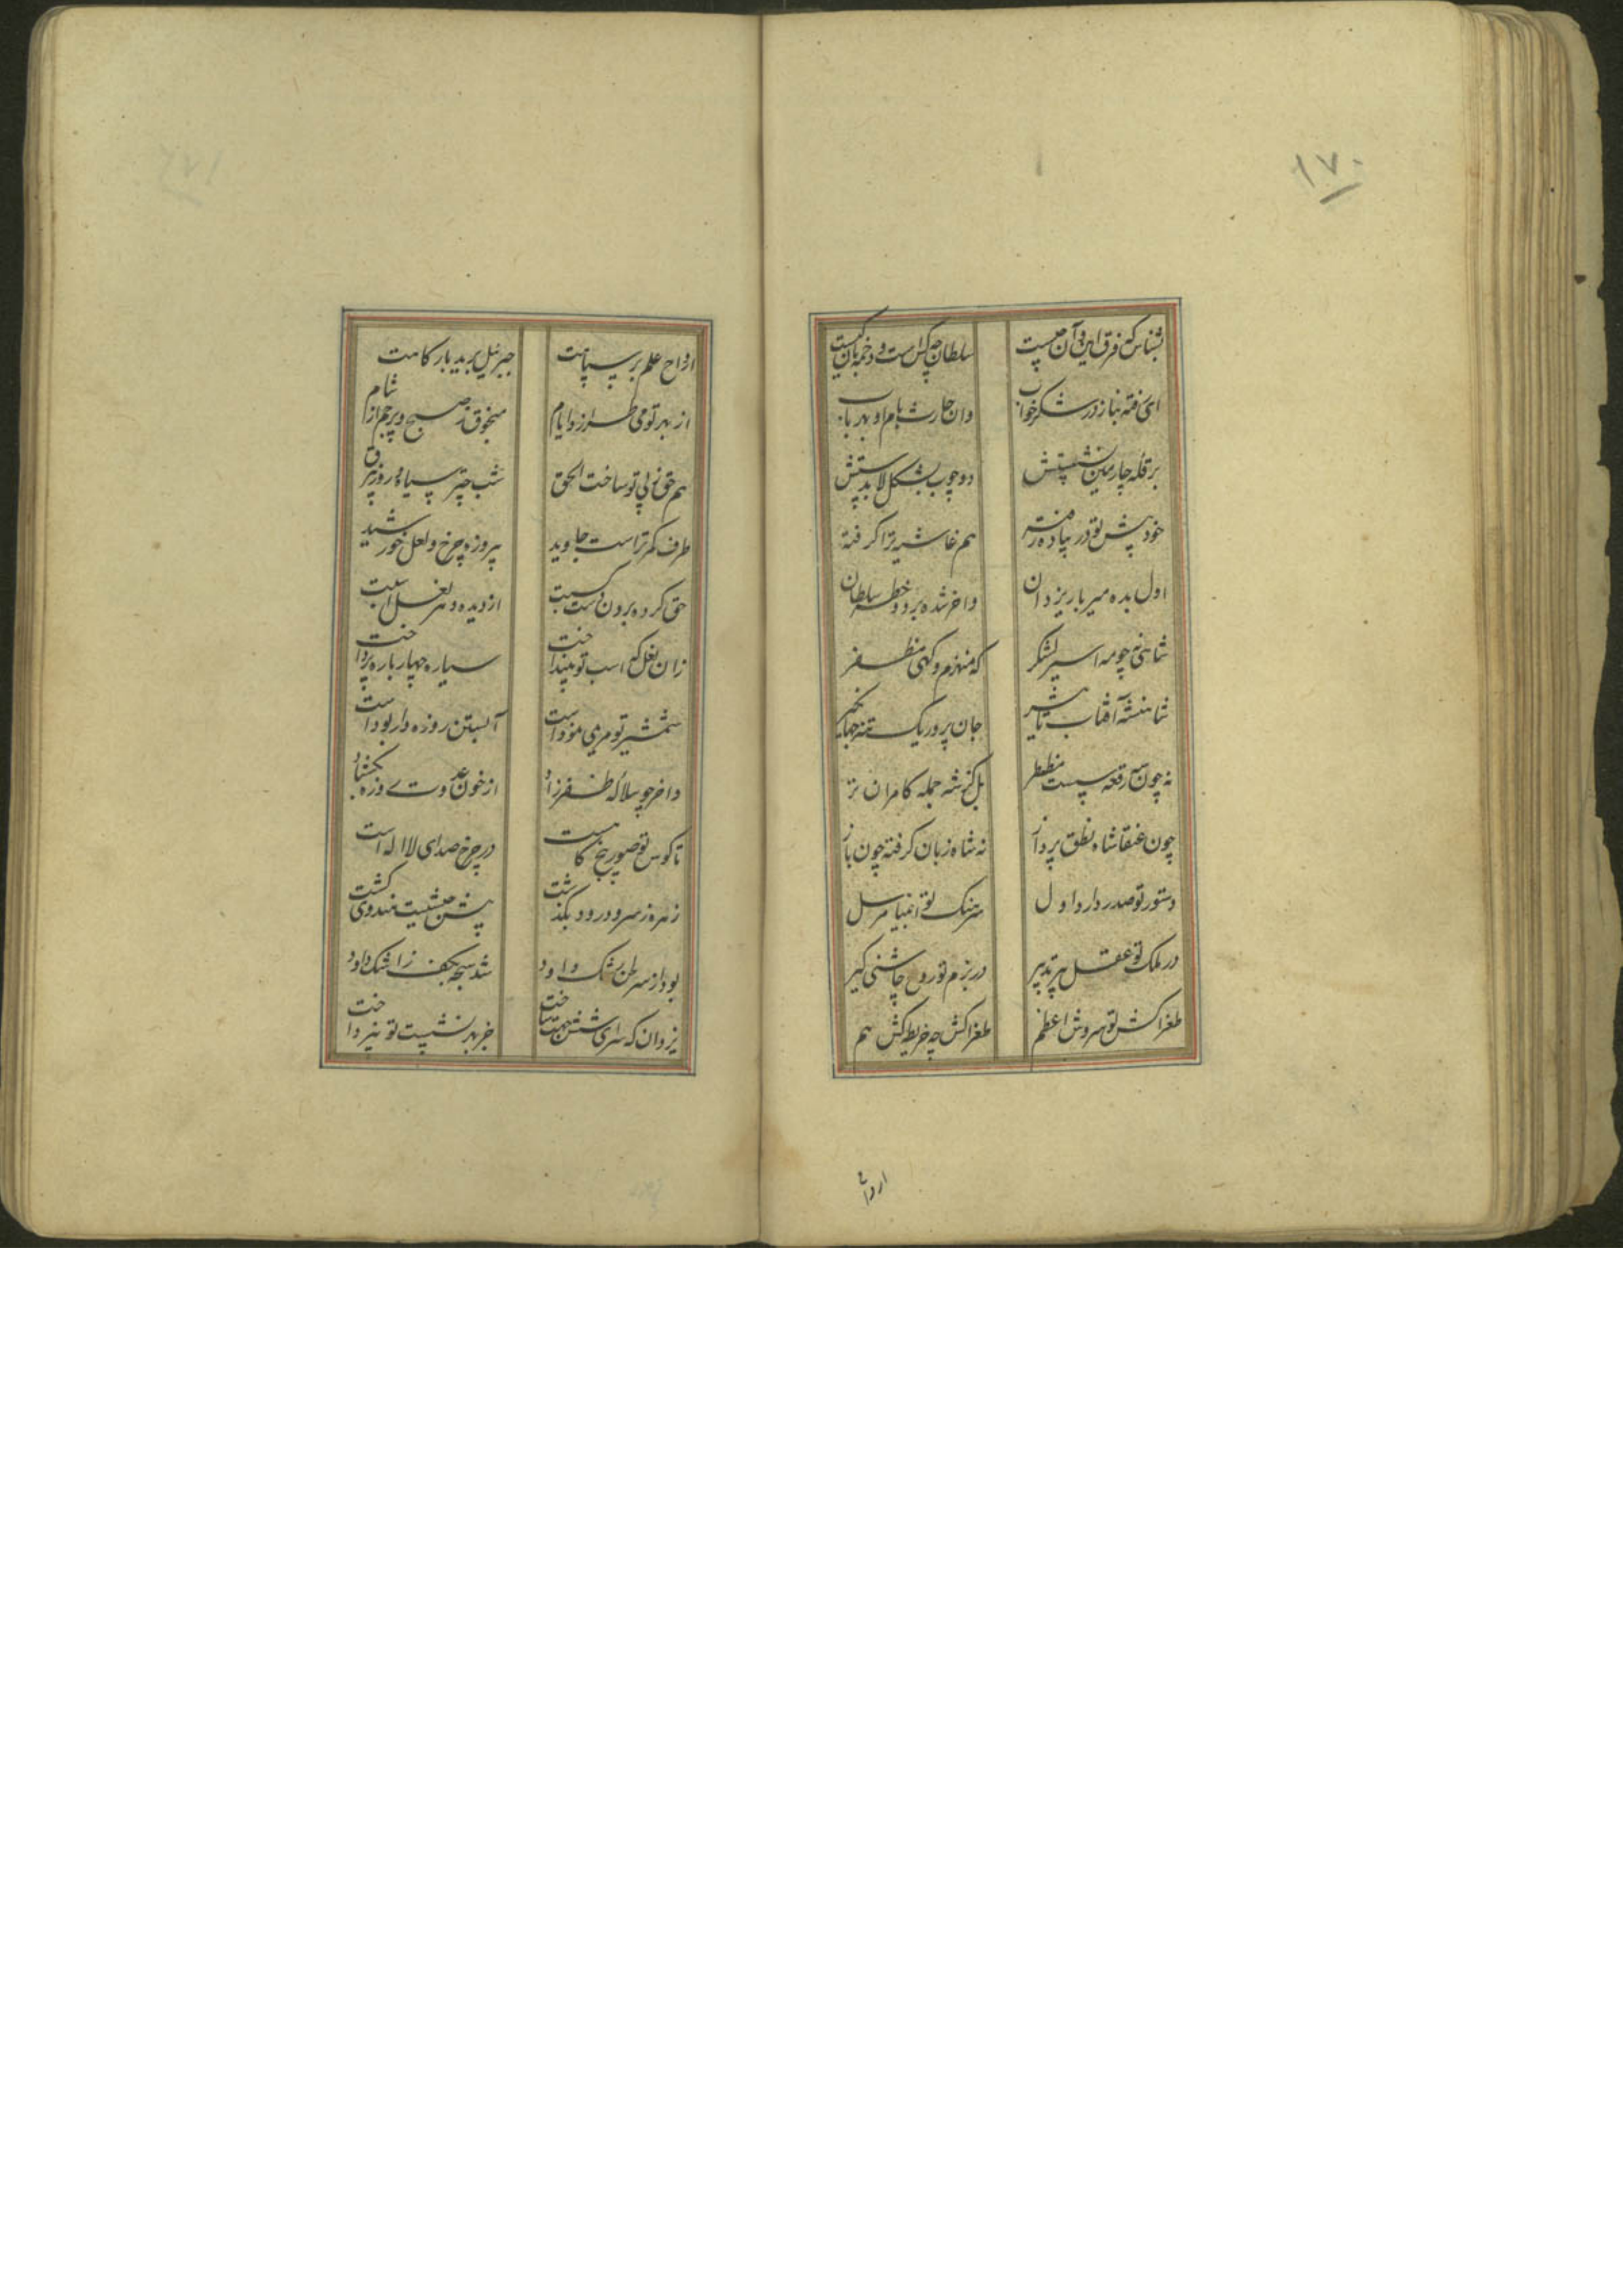 ۱۷۰
بشناس که فرق این و آن چیست
سلطان چه کس است و دخمه‌بان کیست
ای خفته بناز در شکر خواب
وان حارث بام او بهر باب
بر قله چارمین نشستش
دو چوب بشکل لا بدستش
خود پیش تو در پیاده رفته
هم غاشیه ترا گرفته
اول بده میر بار یزدان
واخر شده برد و خطه سلطان
شاهی نه چو مه اسیر لشکر
که منهزم و گهی مظفر
شاهنشه آفتاب تاثیر
جان پرور یک تنه جهانگیر
نه چون سه رقعه پست منظر
بل کز شه جمله کامران تر
چون عنقا شاه نطق پرداز
نه شاه زبان گرفته چون باز
دستور تو صدردار اول
سرهنگ تو انبیا مرسل
در ملک تو عقل پر تدبیر
در بزم تو روح چاشنی گیر
طغراکش تو سروش اعظم
طغراکش چه خریطه‌کش هم
ارواح
ارواح علم بر سپاهت
جبرئیل برید بارگاهت
از بهر تو می طرازد ایام
منجوق ز صبح و پرچم از شام
هم حق نوپی تو ساخت الحق
شب چتر سیاه و روز بیرق
طرف کمر تراست جاوید
پیروزه چرخ و لعل خورشید
حق کرده برون دست
از دیده دهر نعل اسبت
زان نعل که اسب تو بینداخت
سیاره چهار پاره پرداخت
شمشیر تو مریمی نمود است
آبستن روزه دار بود است
واخر چو سلاله ظفر زاد
از خون عدوت روزه بگشاد
تا کوس تو صور پنج گاه است
در چرخ صدای لا اله است
زهره ز سرود رود بگذشت
پیشت هندوی گشت
بود از سرطن بشک داود
شد سبحه بکف ز اشک داود
یزدان که سرای شش جهت ساخت
جز بهر نشست تو نپرداخت